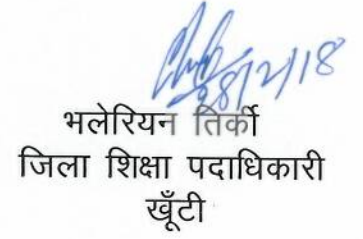 28/2/18
भलेरियन तिर्की
जिला शिक्षा पदाधिकारी
खूँटी